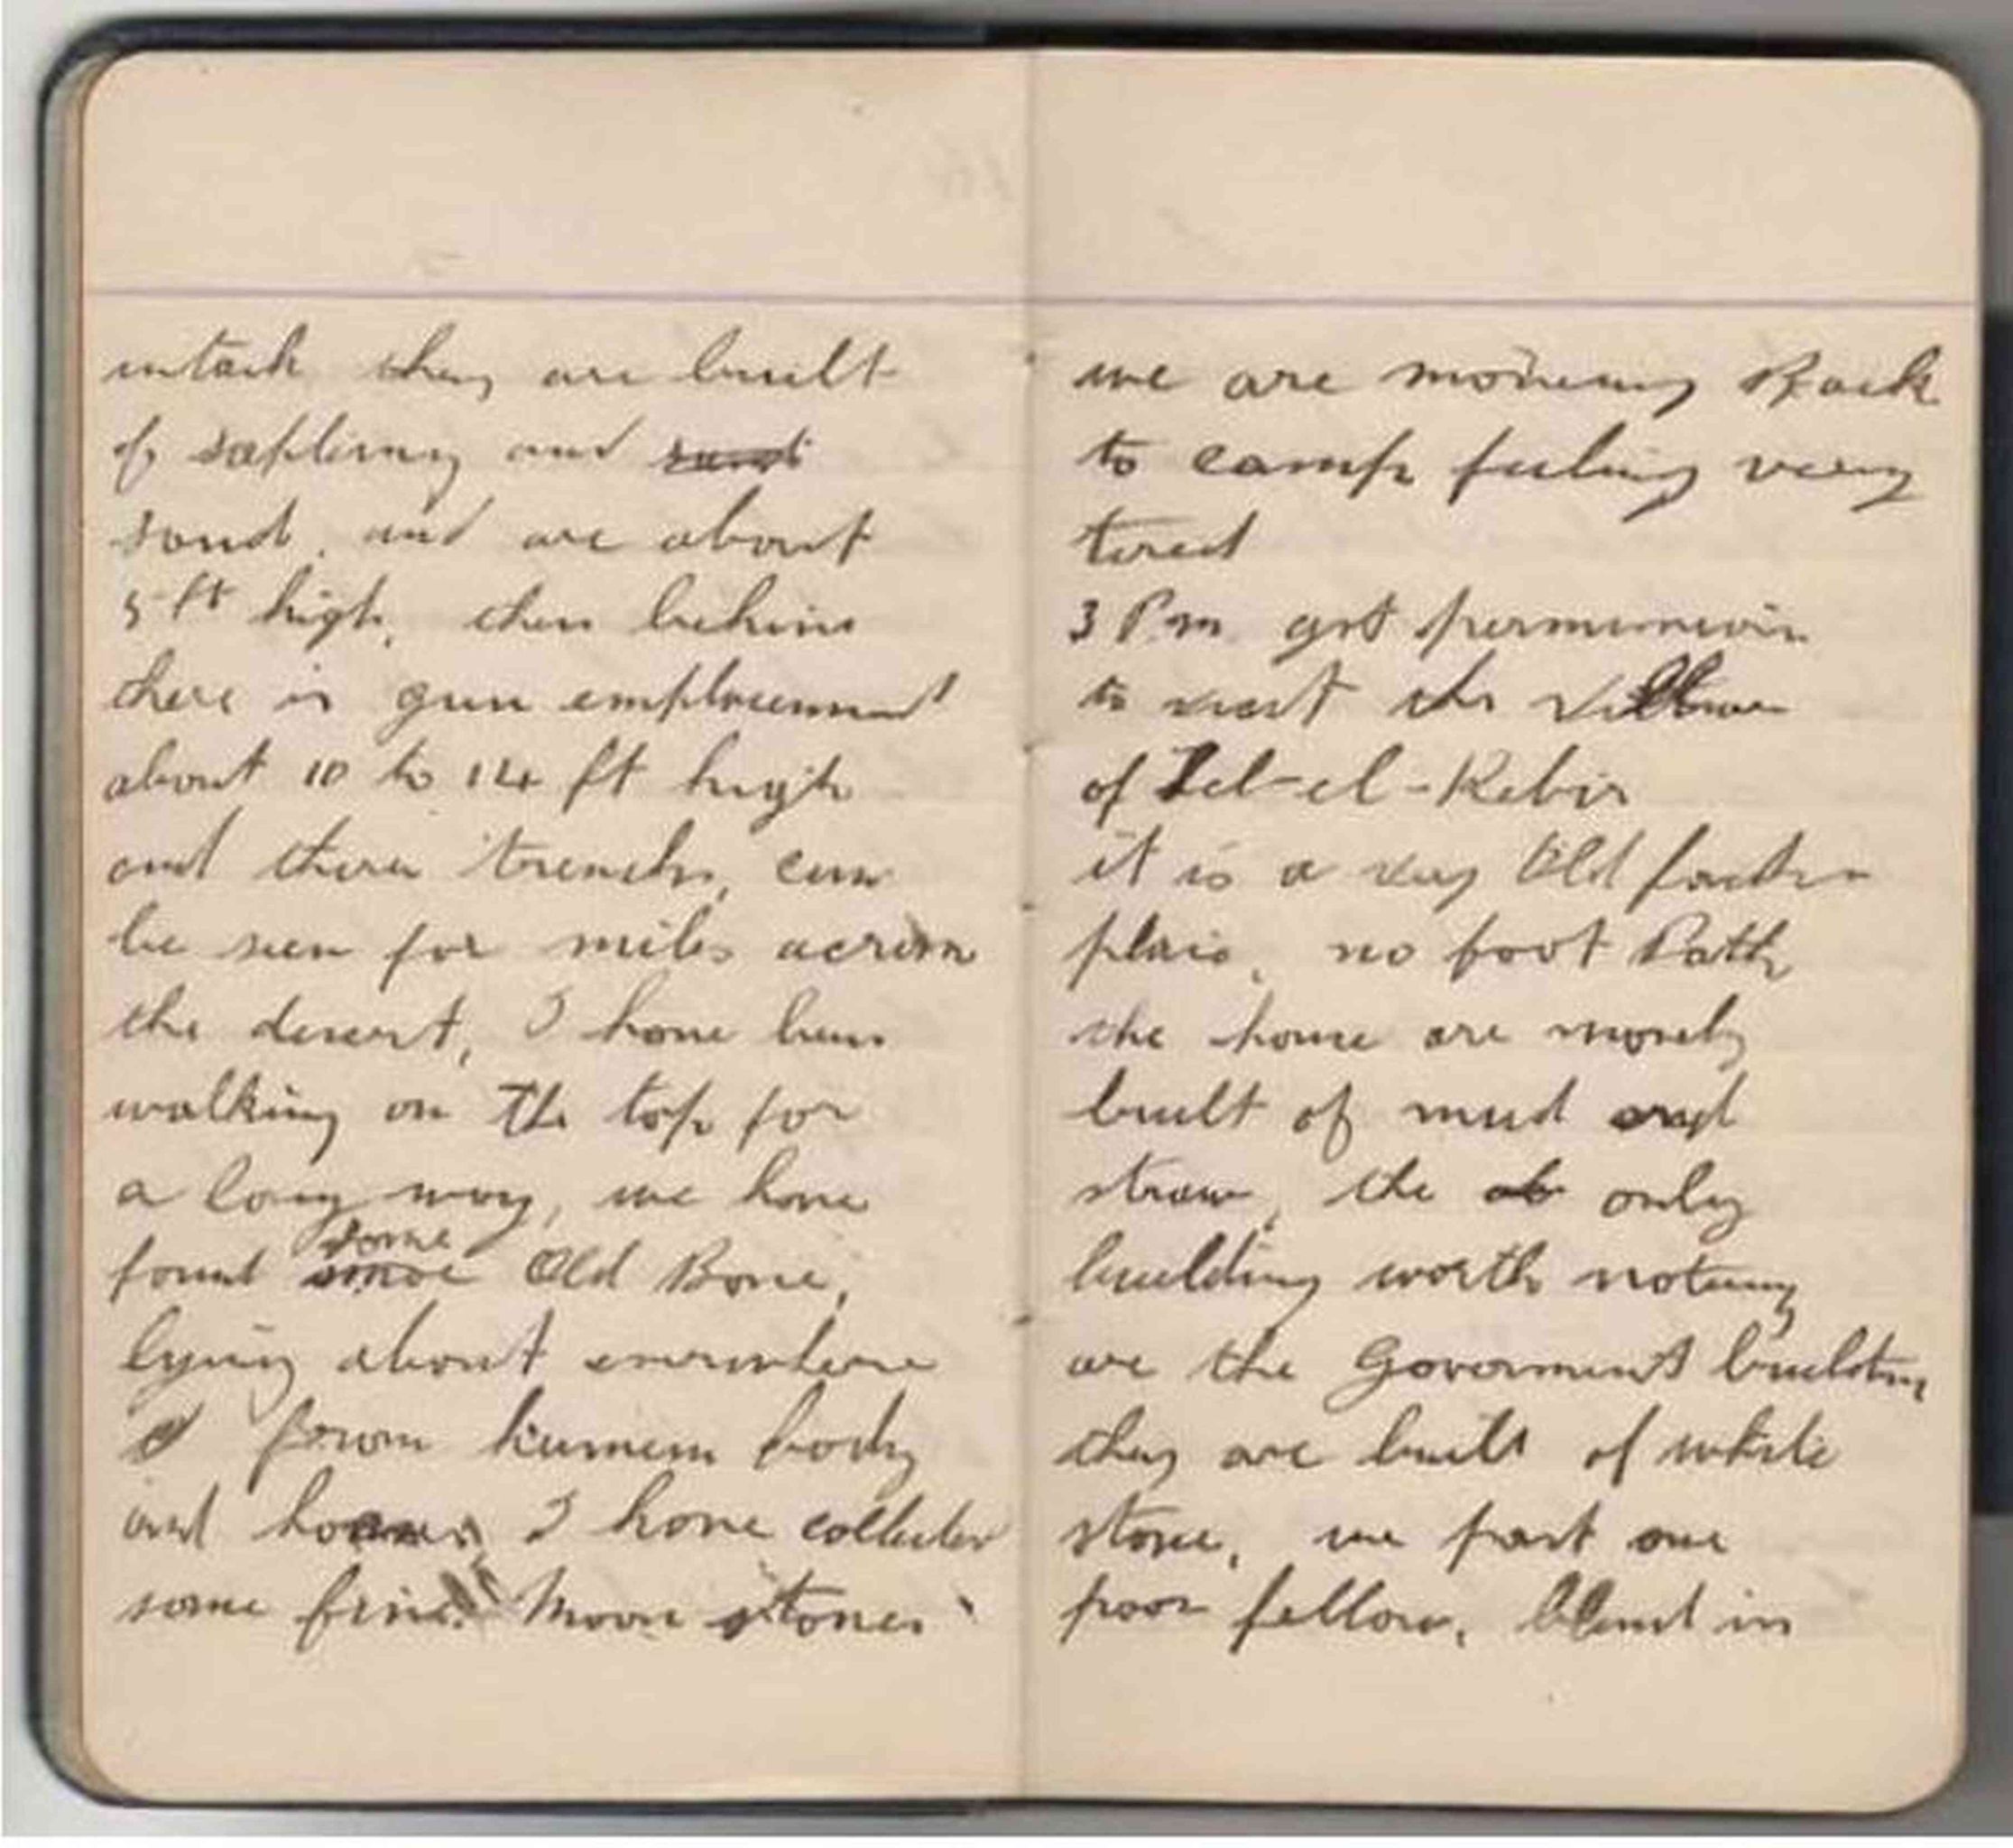 intack they are built
of saplising and sand
sand, and are about
5 ft high, then behind
there is gun emplacement
about 10 to 14 ft high
and these trenches, can
be seen for miles across
the desert, I have been
walking on the top for
a long way, we have
found some Old Bone,
lying about everwhere
from humem body
and horses, I have collected
some fine "Moon stones"
we are moveing Back
to camp feeling very
tired
3 Pm got permission
to visit the Village
of Tel-el-Kebir
it is a very Old fashion
place, no foot Path
the house are mostly
built of mud and
straw, the only
building worth noteing
are the Goverment building
they are built of white
stone, we past one
poor fellow, blind in